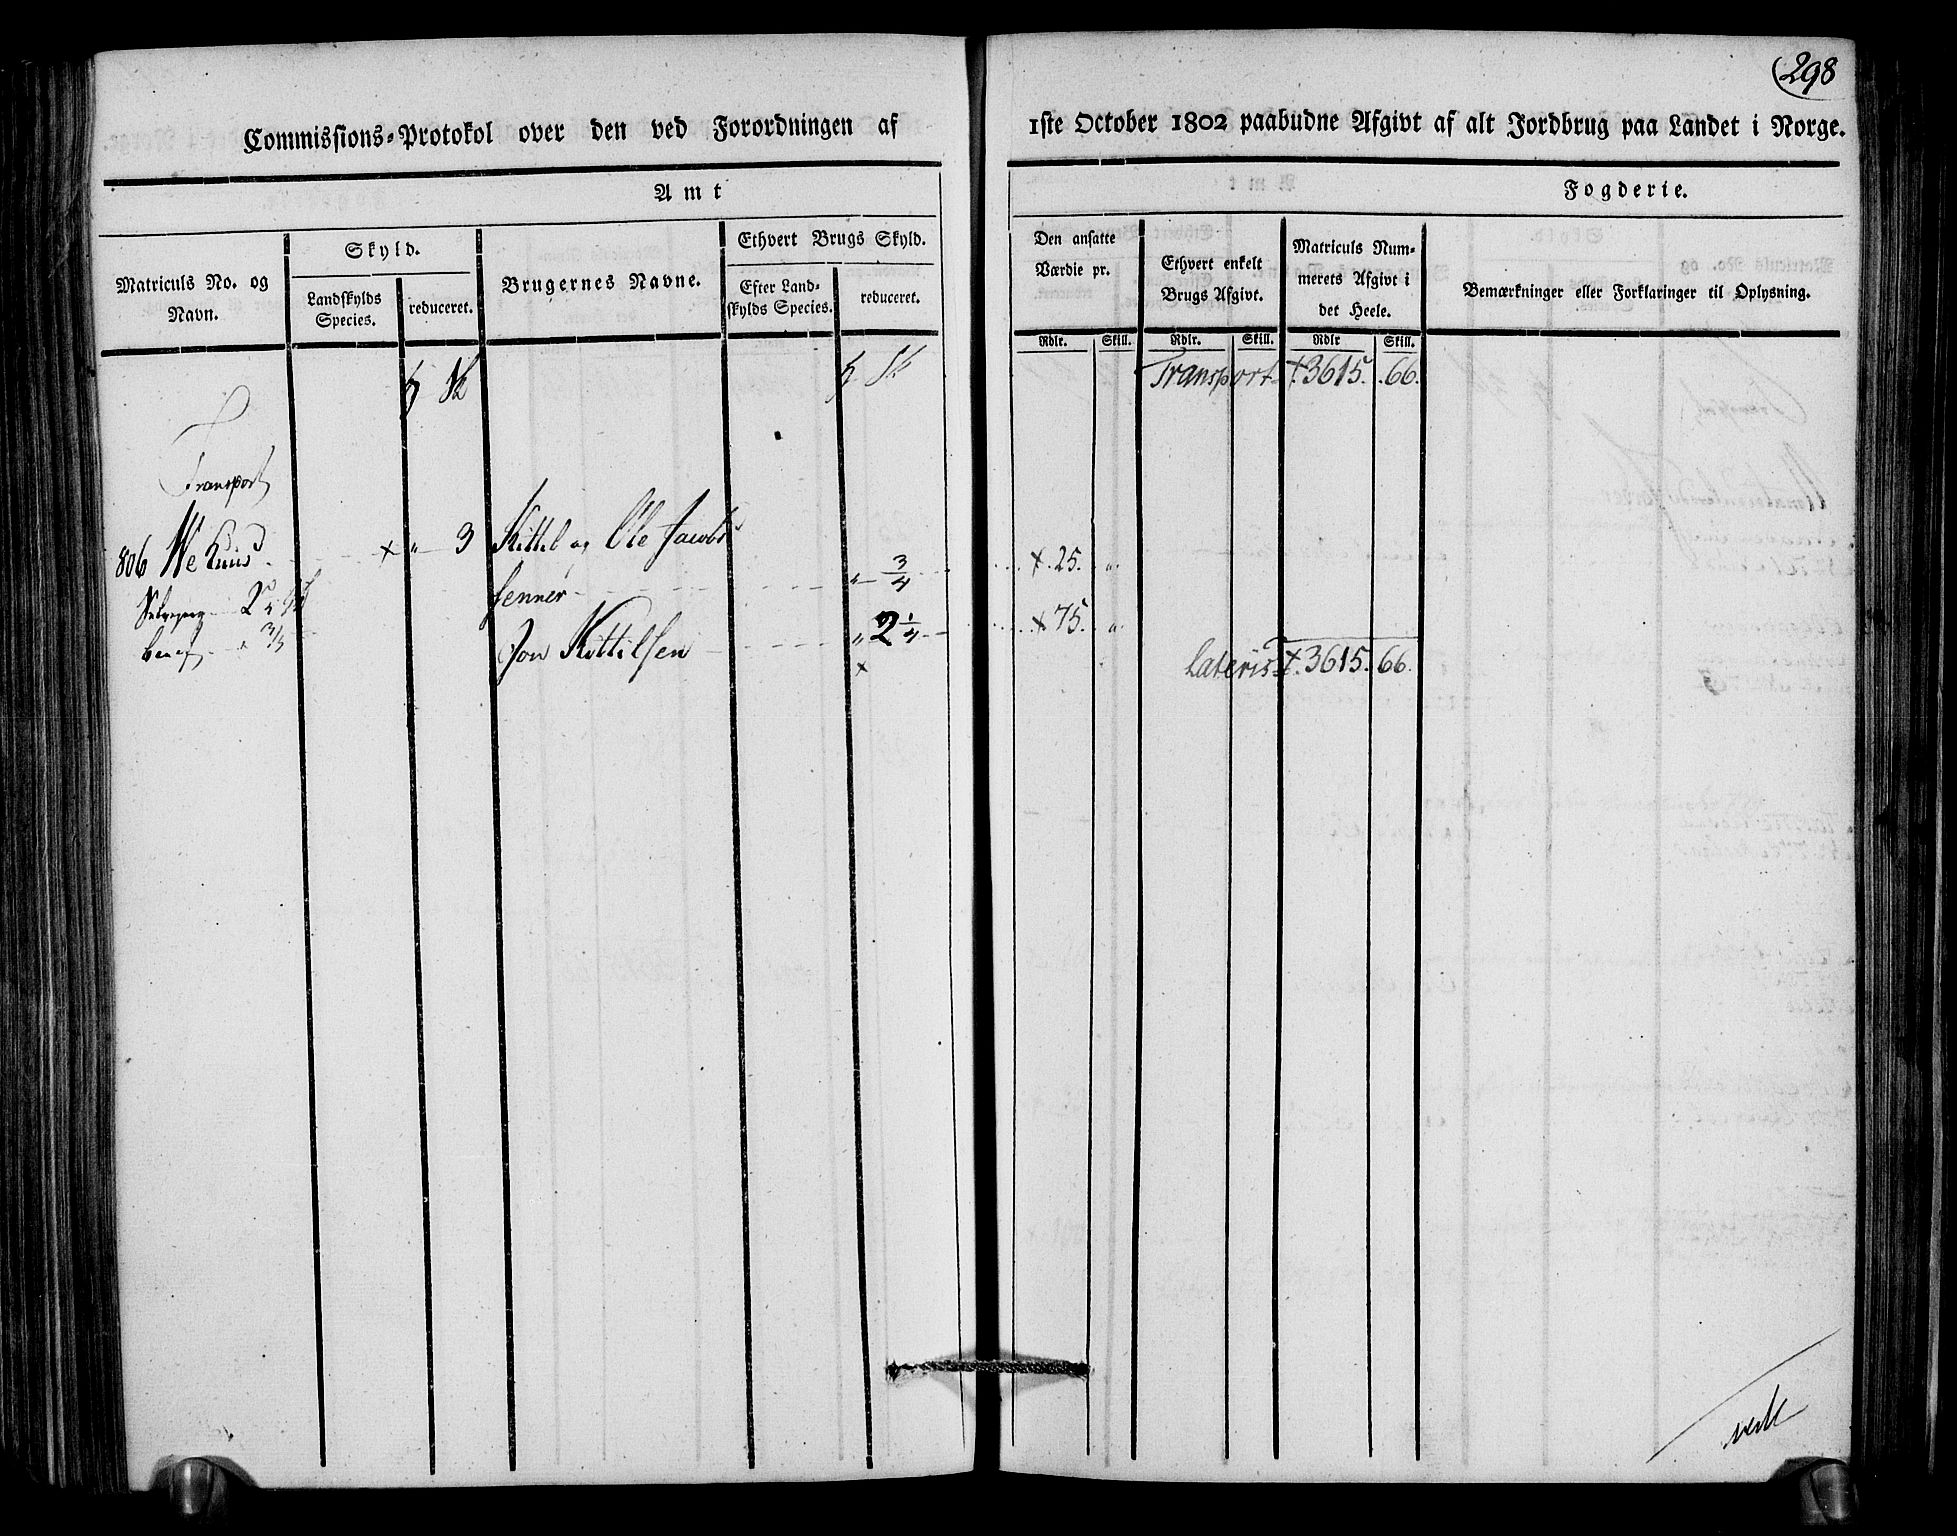 298
Commissions=Protokol over den ved Forordningen af 1ste October 1802 paabudne Afgivt af alt Jordbrug paa Landet i Norge.
Amt
Fogderie.
Matriculs No. og Navn.
Skyld.
Landskylds Species.
reduceret.
Brugernes Navne.
Ethvert Brugs Skyld.
Efter Land= skylds Species.
reduceret.
Den ansatte Værdie pr.
Rdlr. Skill.
Ethvert enkelt Brugs Afgivt.
Rdlr. Skill.
Matriculs Num= merets Afgivt i det Heele.
Rdlr Skill.
Bemærkninger eller Forklaringer til Oplysning.
Transport 3615. 66.
Transport
806 We 3 Kittil og Ole Jacobs
Senner 3/4 25.
Jon Kittilsen 2 1/4 75.
Lateris 3615. 66.